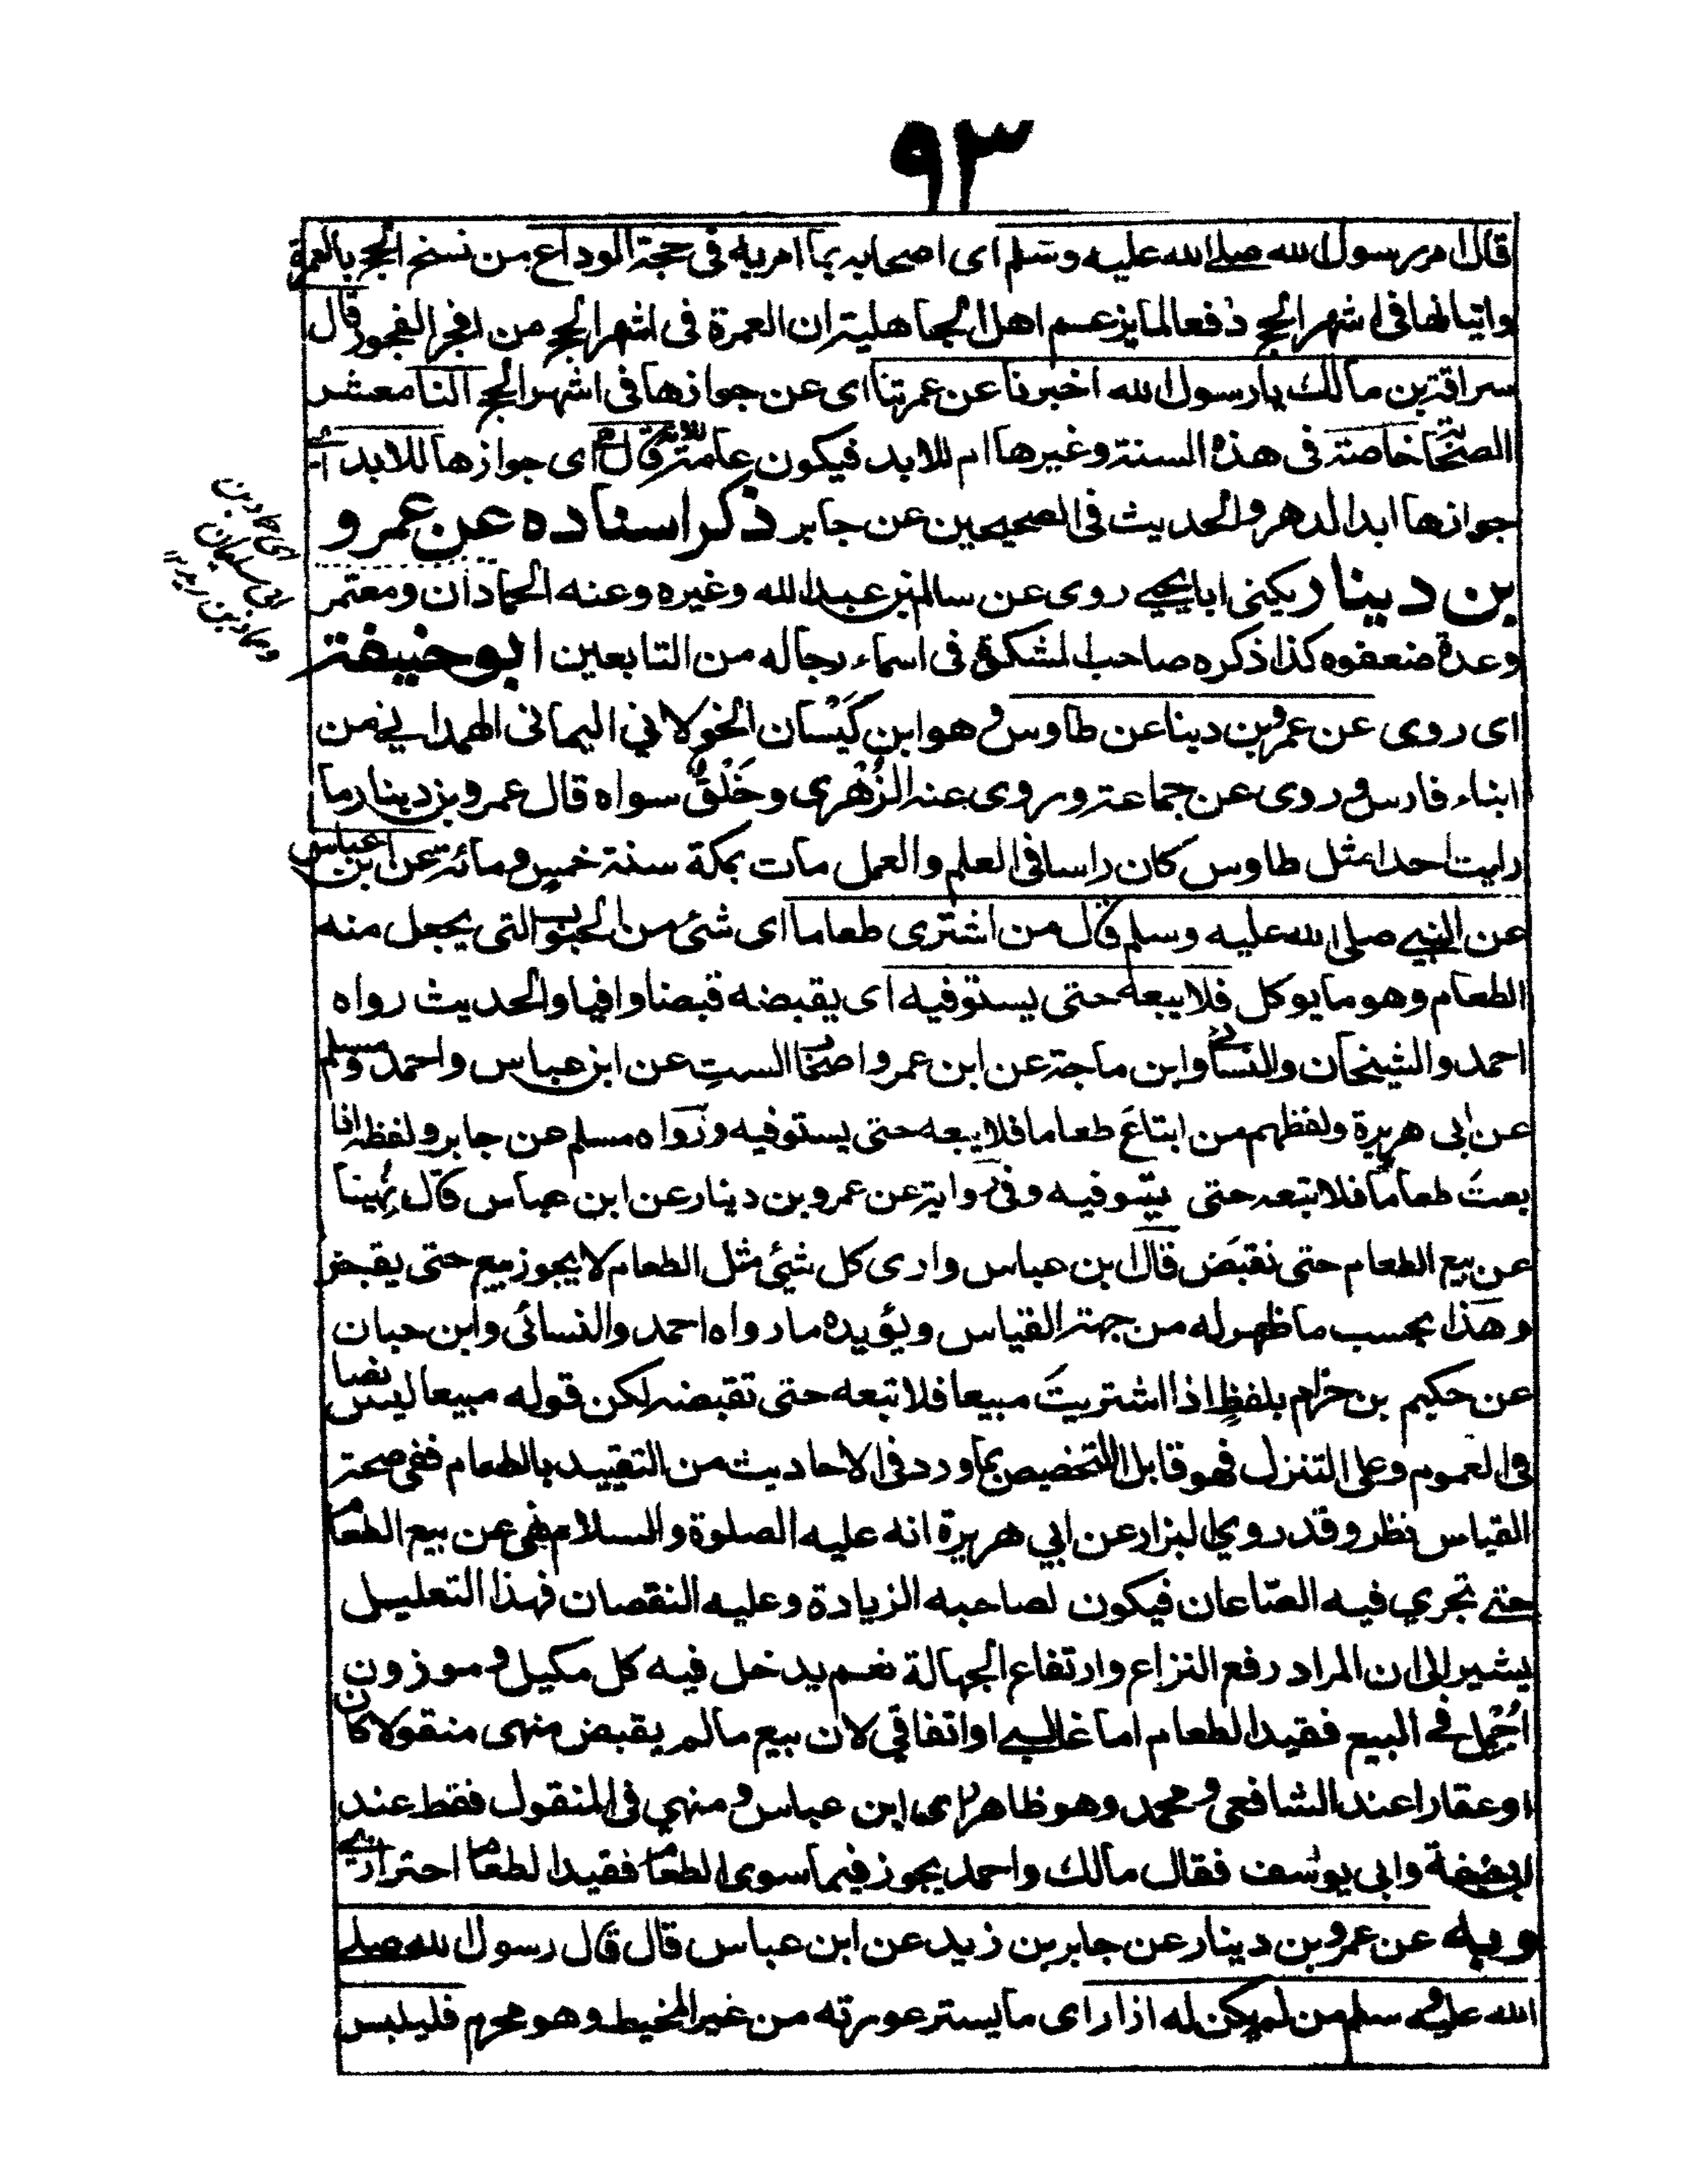 ٩٣
قال امر رسول الله صلے الله عليه وسلم اى اصحابه بما امر به فى حجة الوداع من نسخ الحج بالعمرة
واتيانها فى اشهر الحج دفعا لما يزعم اهل الجاهلية ان العمرة فى اشهر الحج من افجر الفجور قال
سراقة بن مالك يا رسول الله اخبرنا عن عمرتنا اى عن جوازها فى اشهر الحج النا معشر
الصحابة خاصة فى هذه السنة وغيرها ام للابد فيكون عامة قال اى جوازها للابد اى
جوازها ابد الدهر والحديث فى الصحيحين عن جابر ذكر اسناده عن عمرو
بن دينار يكنى ابا يحيے روى عن سالم بن عبد الله وغيره وعنه الحمادان ومعتمر
وعدة ضعفوه كذا ذكره صاحب المشكوة فى اسماء رجاله من التابعين ابو حنيفة
اى روى عن عمرو بن دينا عن طاوس وهو ابن كَيْسَان الخولاني اليمانى الهمدانے من
ابناء فارس وروى عن جماعة وروى عنه الزُّهْرى وخَلْقٌ سواه قال عمرو بن دينار ما
رايت احدا مثل طاوس كان راسا فى العلم والعمل مات بمكة سنة خمس ومائة عن ابن عباس
عن النبے صلى الله عليه وسلم قال من اشترى طعاما اى شئ من الحبوب التى يجعل منه
الطعام وهو ما يوكل فلا يبعه حتى يستوفيه اى يقبضه قبضا وافيا والحديث رواه
احمد والشيخان والنسائے وابن ماجة عن ابن عمر واصحاب الستِ عن ابن عباس واحمد ومسلم
عن ابى هريرة ولفظهم من ابتاعَ طعاما فلا يبعه حتى يستوفيه ورواه مسلم عن جابر ولفظه اذا
بعتَ طعاما فلا تبعه حتى يستوفيه وفى رواية عن عمرو بن دينار عن ابن عباس قال نُهِينا
عن بيع الطعام حتى نقبَض قال ابن عباس وارى كل شئ مثل الطعام لا يجوز بيع حتى يقبض
وهذا بحسب ما ظهر له من جهة القياس ويؤيده ما رواه احمد والنسائى وابن حبان
عن حكيم بن حزام بلفظِ اذا اشتريتَ مبيعا فلا تبعه حتى تقبضه لكن قوله مبيعا ليس نصا
فى العموم وعلى التنزل فهو قابل للتخصيص بما ورد فى الاحاديث من التقييد بالطعام ففى صحة
القياس نظر وقد روي البزار عن ابي هريرة انه عليه الصلوة والسلام نهى عن بيع الطعام
حتے تجري فيه الصّاعان فيكون لصاحبه الزيادة وعليه النقصان فهذا التعليل
يشير الى ان المراد رفع النزاع وارتفاع الجهالة نعم يدخل فيه كل مكيل وموزون
اجُمِل فے البيع فقيد الطعام اما غالبے او اتفاقي لان بيع مالم يقبض منهى منقولا كان
او عقارا عند الشافعى ومحمد وهو ظاهر راى ابن عباس ومنهي فى المنقول فقط عند
ابى حنيفة وابى يوسف فقال مالك واحمد يجوز فيما سوى الطعام فقيد الطعام احترازى
وبه عن عمرو بن دينار عن جابر بن زيد عن ابن عباس قال قال رسول الله صلے
الله عليه وسلم من لم يكن له ازار اى ما يستر عورته من غير المخيط وهو محرم فليلبس
اى حماد بن
ابى سليمان
وحماد بن زيد